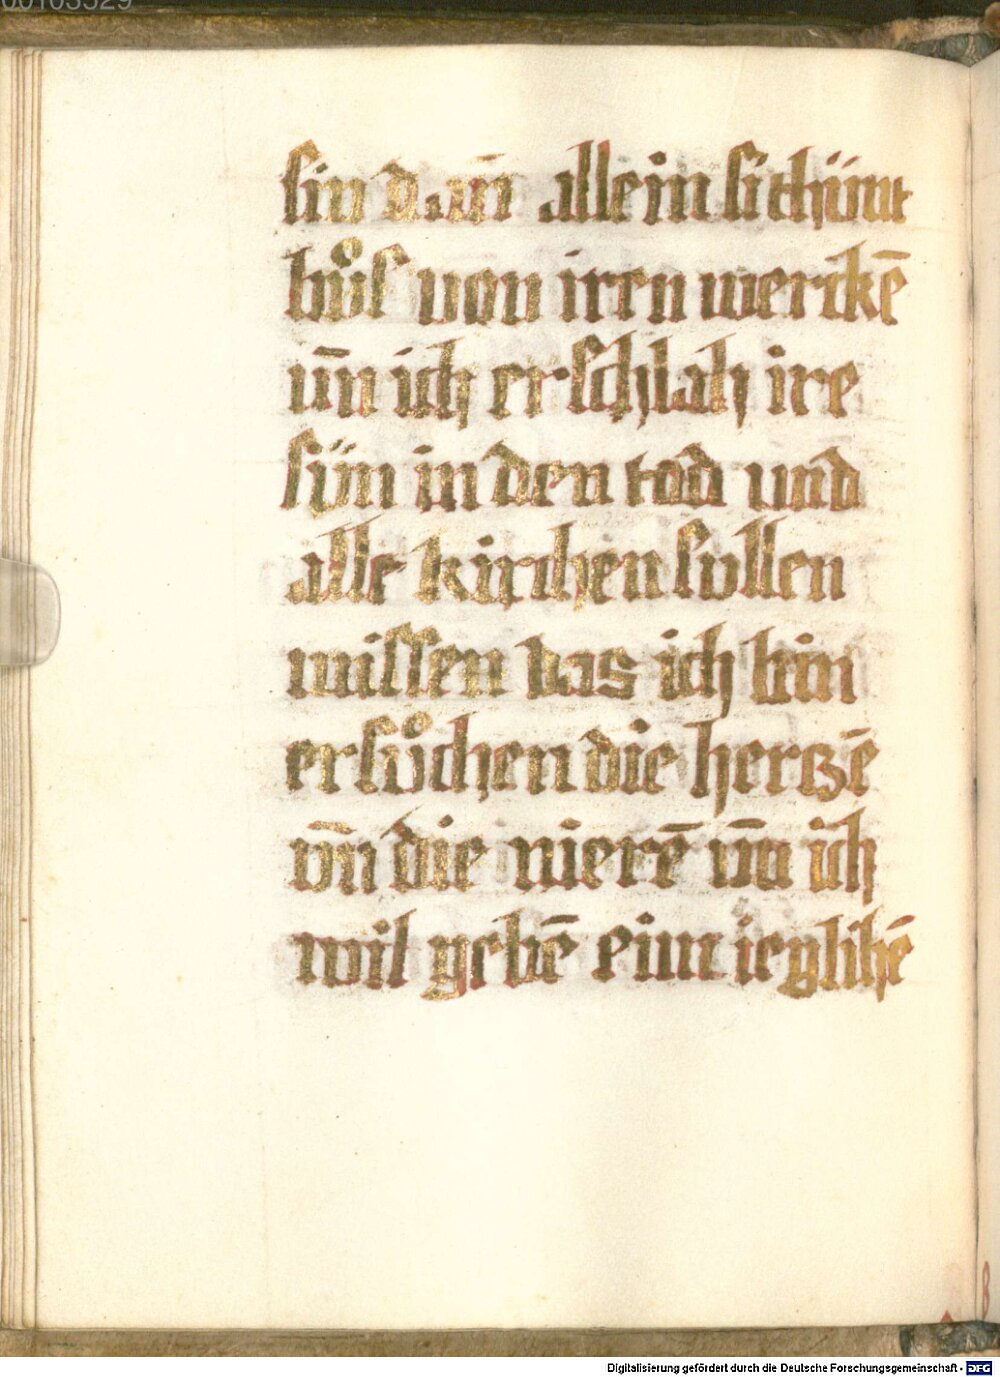 sin dan̄ allein si thünt
bůs von iren werckē
vn̄ ich erschlah ire
sün in den tod und
alle kirchen süllen
wissen das ich bin
ersůchen die hertzē
vn̄ die nierē vn̄ ich
wil gebē eim ieglichē
Digitalisierung gefördert durch die Deutsche Forschungsgemeinschaft - DFG